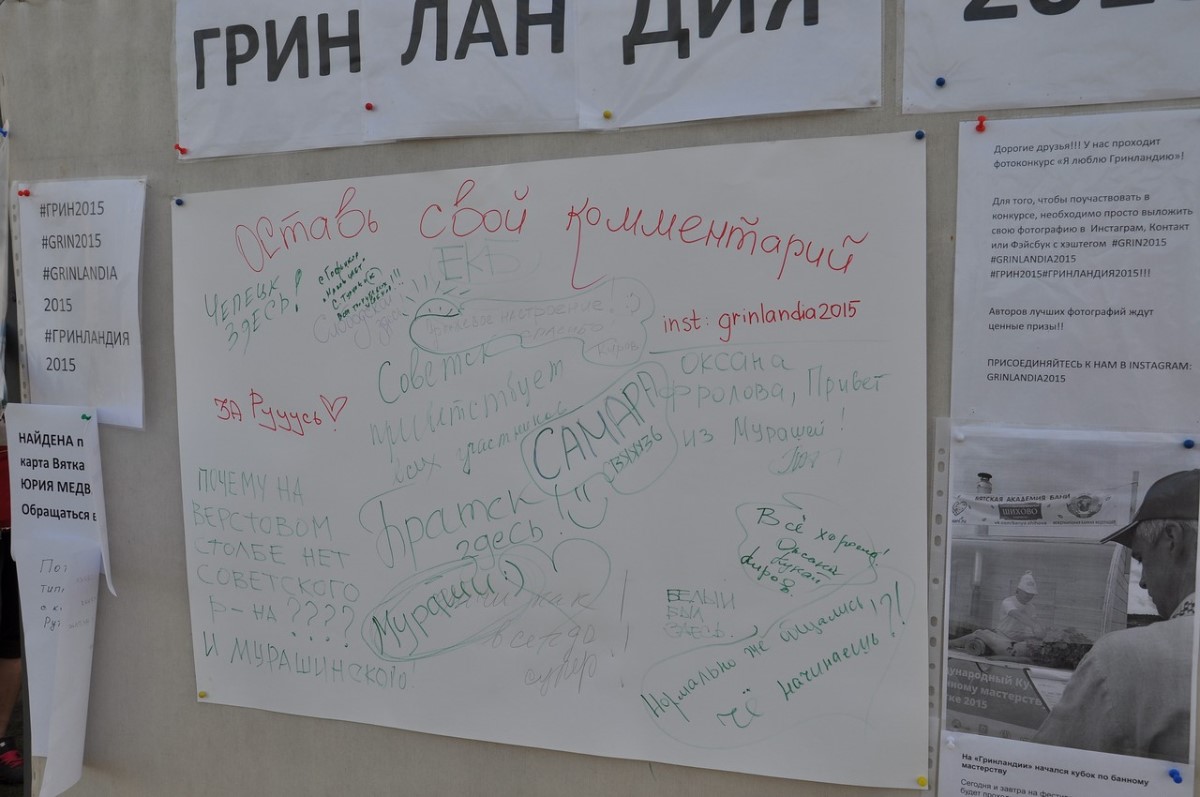 ГРИН ЛАН ДИЯ
#ГРИН2015
#GRIN2015
#GRINLANDIA
2015
#ГРИНЛАНДИЯ
2015
НАЙДЕНА п
карта Вятка
ЮРИЯ МЕДВ
Обращаться в
Оставь свой комментарий
ЕКБ
ЧЕПЕЦК
ЗДЕСЬ!
inst: grinlandia2015
настроение!
ЗА Рууусь!
Советск
приветствует
всех участников
САМАРА
Оксана
Фролова, Привет
из Мурашей!
ПОЧЕМУ НА
ВЕРСТОВОМ
СТОЛБЕ НЕТ
СОВЕТСКОГО
Р-НА ????
И МУРАШИНСКОГО.
Братск
здесь!
Мураши :)
всегда
супер!
Всё хорошо!
Оксана
БЕЛЫЙ
БЫЛ
ЗДЕСЬ.
Нормально же общались
чё начинаешь!?!
Дорогие друзья!!! У нас проходит
фотоконкурс «Я люблю Гринландию»!
Для того, чтобы поучаствовать в
конкурсе, необходимо просто выложить
свою фотографию в Инстаграм, Контакт
или Фэйсбук с хэштегом #GRIN2015
#GRINLANDIA2015
#ГРИН2015#ГРИНЛАНДИЯ2015!!!
Авторов лучших фотографий ждут
ценные призы!!
ПРИСОЕДИНЯЙТЕСЬ К НАМ В INSTAGRAM:
GRINLANDIA2015
ВЯТСКАЯ АКАДЕМИЯ БАНИ
ШИХОВО
На «Гринландии» начался кубок по банному
мастерству
Сегодня и завтра на фести